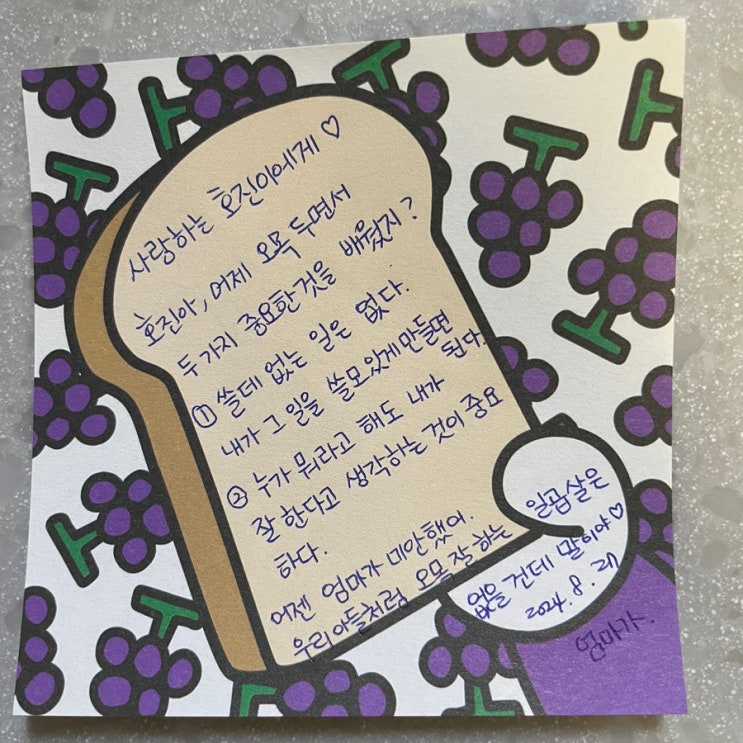 사랑하는 호진이에게 ♡
호진아, 어제 오목 두면서
두 가지 중요한 것을 배웠지?
① 쓸데 없는 일은 없다.
내가 그 일을 쓸모있게 만들면
된다.
② 누가 뭐라고 해도 내가
잘 한다고 생각하는 것이 중요
하다.
어젠 엄마가 미안했어.
우리 아들처럼 오목 잘 하는
일곱살은
없을 건데 말이야♡
2024. 8. 27
엄마가.